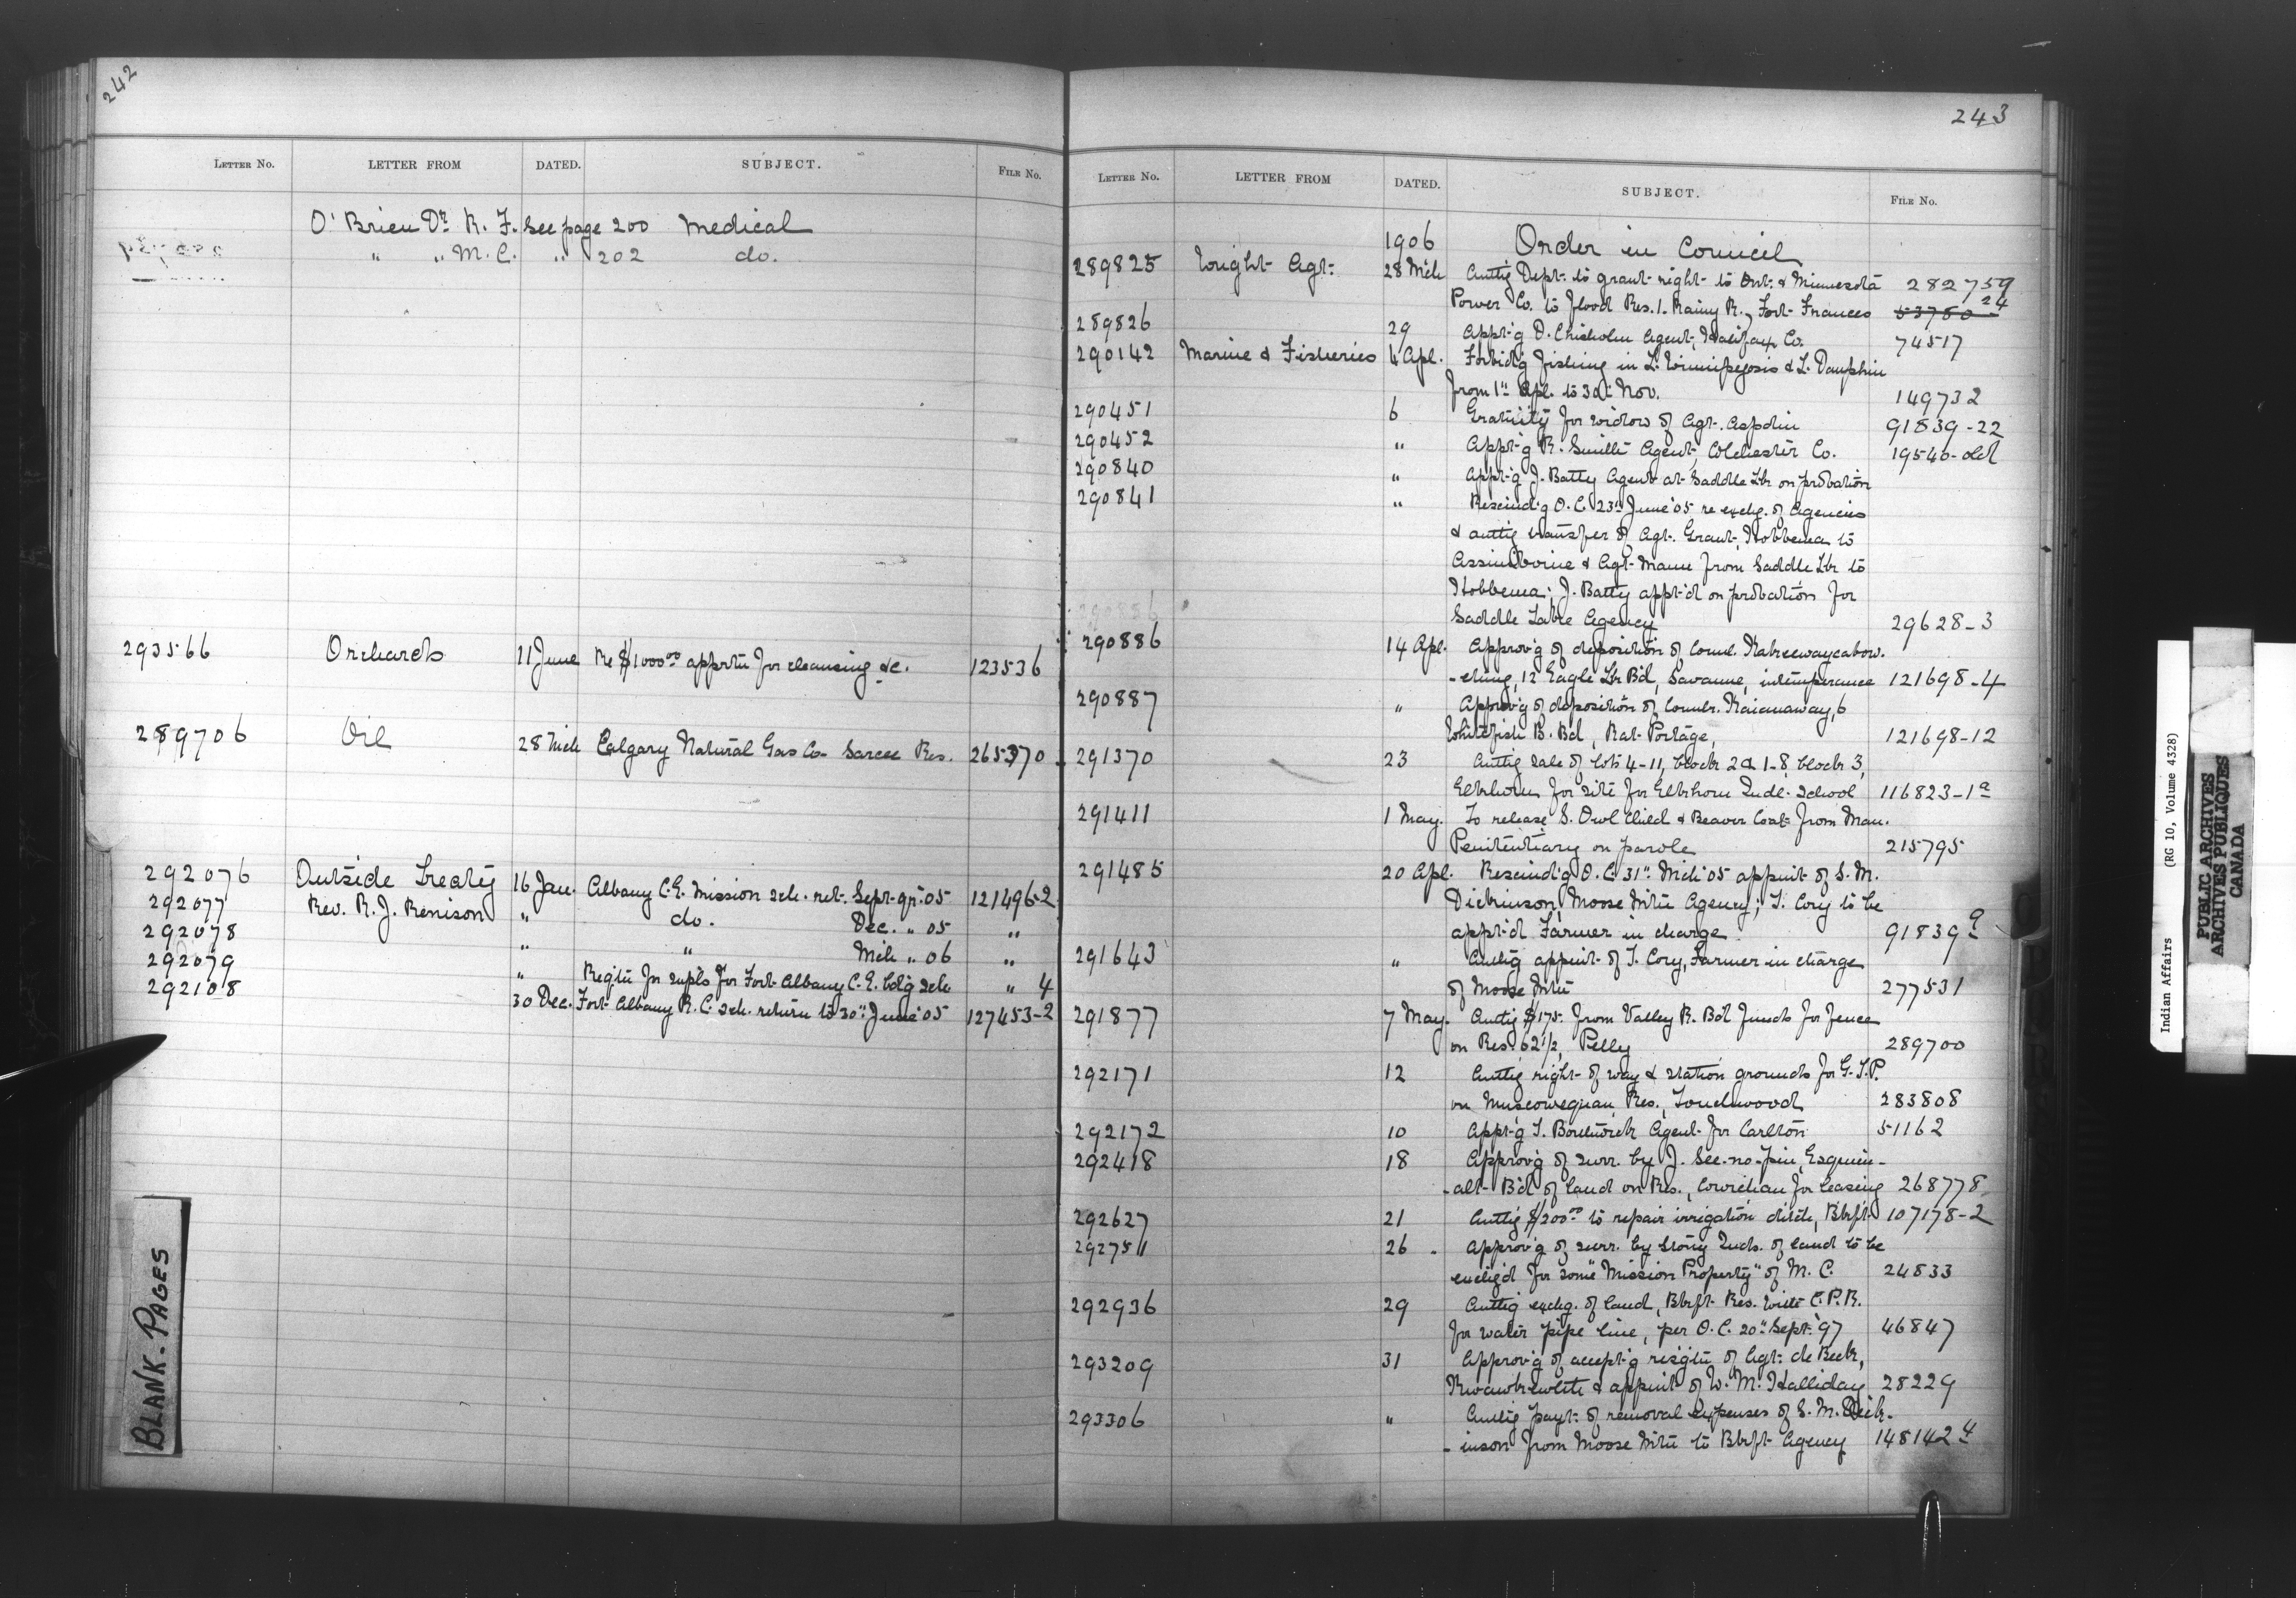 242
LETTER NO. LETTER FROM DATED. SUBJECT. FILE NO.
O'Brien Dr. R. F. See page 200 Medical
" " M. C. " 202 do.
293566 Orchards 11 June Re $1000.00 apprtn for cleansing &c. 123536
289706 Oil 28 Mch Calgary Natural Gas Co - Sarcee Res. 265370
292076 Outside Treaty 16 Jan. Albany C.E. Mission Sch. ret. Sept. qr. 05 121496-2
292077 Rev. R. J. Renison " do. Dec. " 05 "
292078 " " Mch " 06 "
292079 " Regitn for supls for Fort Albany C.E. bdg Sch " 4
292108 30 Dec. Fort Albany R.C. Sch. return to 30" June '05 127453-2
BLANK-PAGES
243
LETTER NO. LETTER FROM DATED. SUBJECT. FILE NO.
1906 Order in Council
289825 Wright Agt: 28 Mch Authg Dept. to grant right to Ont. & Minnesota 282759
Power Co. to flood Res. 1. Rainy R., Fort Frances 53780-24
289826 29 Appt'g D. Chisholm Agent, Halifax Co. 74517
290142 Marine & Fisheries 4 Apl. Forbid'g fishing in L. Winnipegosis & L. Dauphin
from 1" Apl. to 30" Nov. 149732
290451 6 Gratuity for widow of Agt. Aspdin 91839-22
290452 " Appt'g R. Smith Agent, Colchester Co. 19540-old
290840 " Appt'g J. Batty Agent at Saddle Lk on probation
290841 " Rescind'g O.C. 23" June '05 re exchg. of Agencies
& authg transfer of Agt. Grant, Hobbema to
Assiniboine & Agt. Mann from Saddle Lk to
Hobbema; J. Batty appt'd on probation for
Saddle Lake Agency 29628-3
290886 14 Apl. Approv'g of deposition of Coun'l. Kabzeewaycabow-
-ching, 12 Eagle Lk Bd, Savanne, intemperance 121698-4
290887 " Approv'g of deposition of Counlr. Kaianaway, 6
Whitefish B. Bd, Rat Portage, 121698-12
291370 23 Authg sale of lots 4-11, block 2 & 1-8, block 3,
Elkhorn for site for Elkhorn Indl. School 116823-1a
291411 1 May. To release S. Owl Child & Beaver Coat from Man.
Penitentiary on parole 215795
291485 20 Apl. Rescind'g O.C. 31" Mch '05 appmt of S. M.
Dickinson, Moose Mtn Agency; T. Cory to be
appt'd Farmer in charge 91839 9
291643 " Authg appmt. of T. Cory, Farmer in charge
of Moose Mtn 277531
291877 7 May. Authg $175. from Valley R. Bd funds for fence
on Res. 62 1/2, Pelly 289700
292171 12 Authg right of way & station grounds for G.T.P.
on Muscowequan Res., Touchwood 283808
292172 10 Appt'g T. Borthwick Agent for Carlton 51162
292418 18 Approv'g of surr. by J. See-no-pin, Esquim-
-alt Bd of land on Res., Cowichan for leasing 268778
292627 21 Authg $1200.00 to repair irrigation ditch, Blkft 107178-2
292751 26 Approv'g of surr. by Stony Inds. of land to be
exchg'd for some "Mission Property" of M. C. 24833
292936 29 Authg exchg. of land, Blkft Res. with C.P.R.
for water pipe line, per O.C. 20" Sept. '97 46847
293209 31 Approv'g of accept'g resigtn of Agt. de Beck,
Kwawkewlth & appmt of W. M. Halliday 28229
293306 " Authg payt. of removal expenses of S. M. Dick-
-inson from Moose Mtn to Blkft Agency 148142 4
Indian Affairs (RG 10, Volume 4328)
PUBLIC ARCHIVES
ARCHIVES PUBLIQUES
CANADA